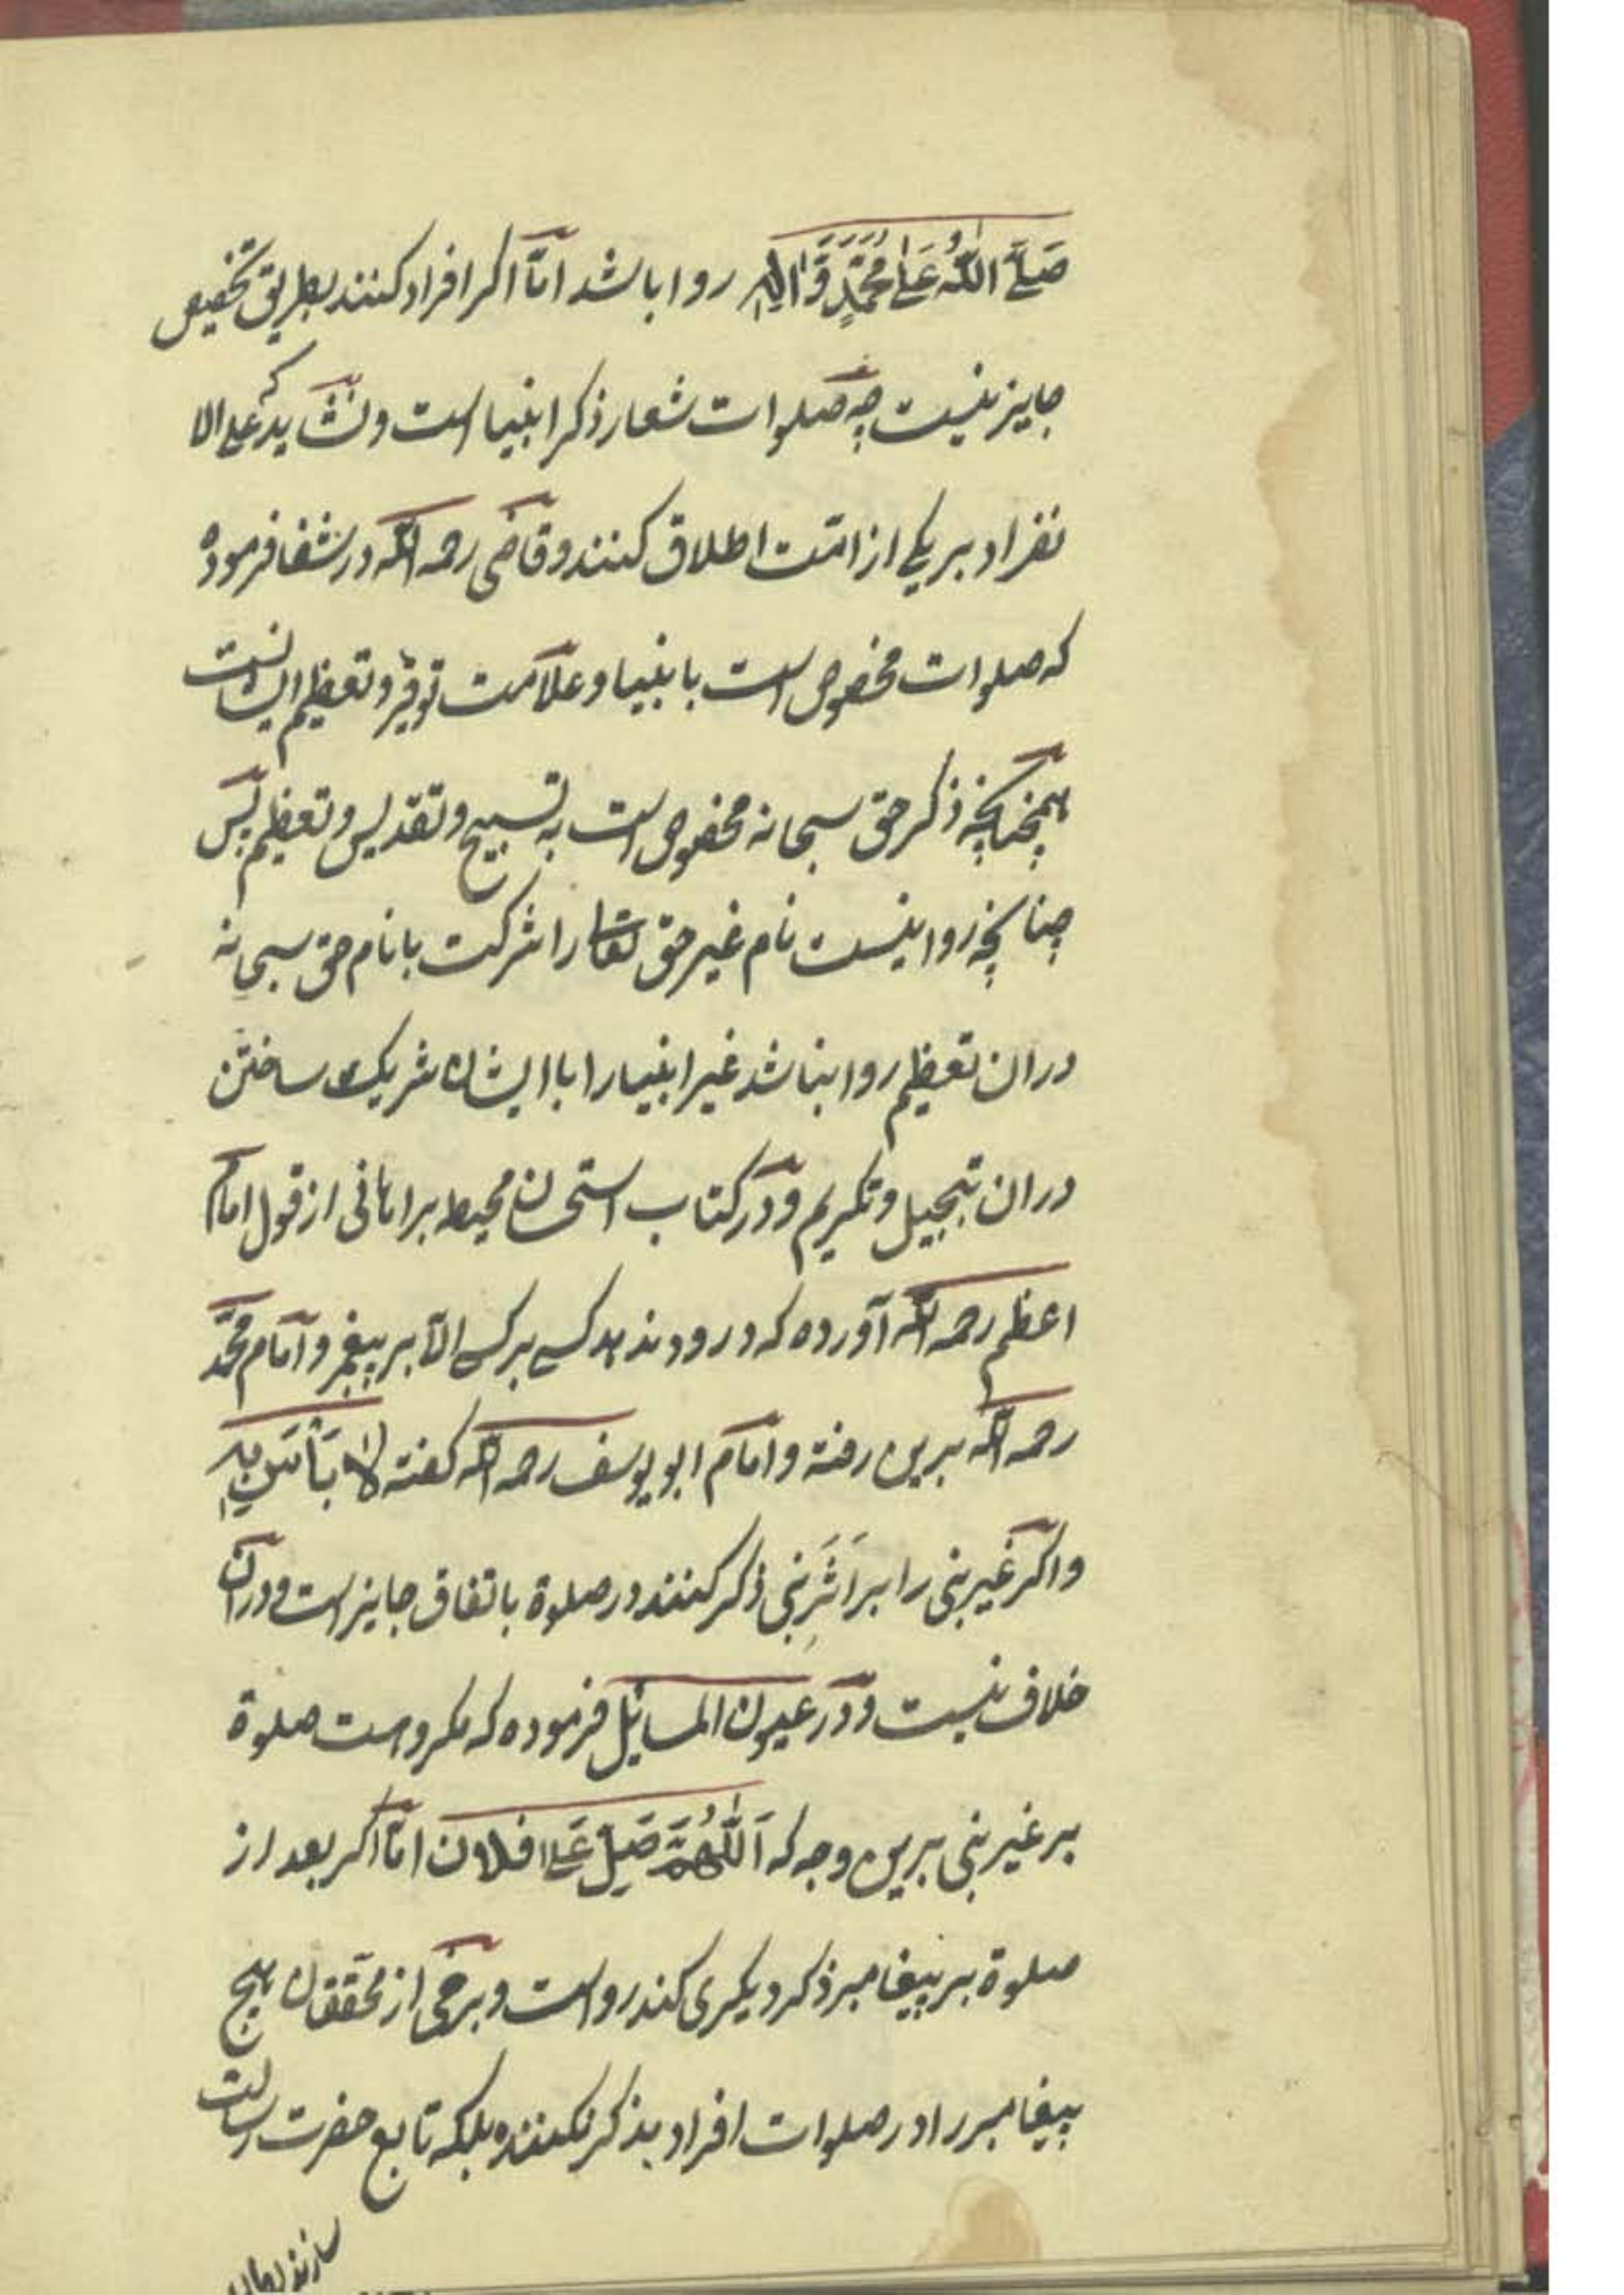 صَلَّی اللّٰهُ عَلٰی مُحَمَّدٍ وَّاٰلِهٖ روا باشد امّا اکر افراد کنند بطریق تخصیص
جایز نیست چه صلوات شعار ذکر انبیا است و نشاید که علی الا
نفراد بر یکی از امّت اطلاق کنند و قاضی رحمه الله در شفا فرموده
که صلوات مخصوص است بانبیا و علامت توقیر و تعظیم ایشانست
همچنانچه ذکر حق سبحانه مخصوص است به تسبیح و تقدیس و تعظیم پس
چنانچه روا نیست نام غیر حق تعالی را شرکت با نام حق سبحانه
دران تعظیم روا نباشد غیر انبیا را با ایشان شریک ساختن
دران تبجیل و تکریم و در کتاب استحسان محیط برهانی از قول امام
اعظم رحمه الله آورده که درود ندهد کسی بر کسی الّا بر پیغمبر و امام محمّد
رحمه الله برین رفته و امام ابو یوسف رحمه الله کفته لَا بَأْسَ بِهٖ
واکر غیر نبی را بر اَثَرِ نبی ذکر کنند در صلوة باتفاق جایز است و دران
خلاف نیست و در عیون المسایل فرموده که مکروهست صلوة
بر غیر نبی برین وجه که اَللّٰهُمَّ صَلِّ عَلٰی فلان امّا اکر بعد از
صلوة بر پیغامبر ذکر دیکری کند رواست و برخی از محققان هیچ
پیغامبر را در صلوات افراد بذکر نکنند بلکه تابع حضرت رسالت